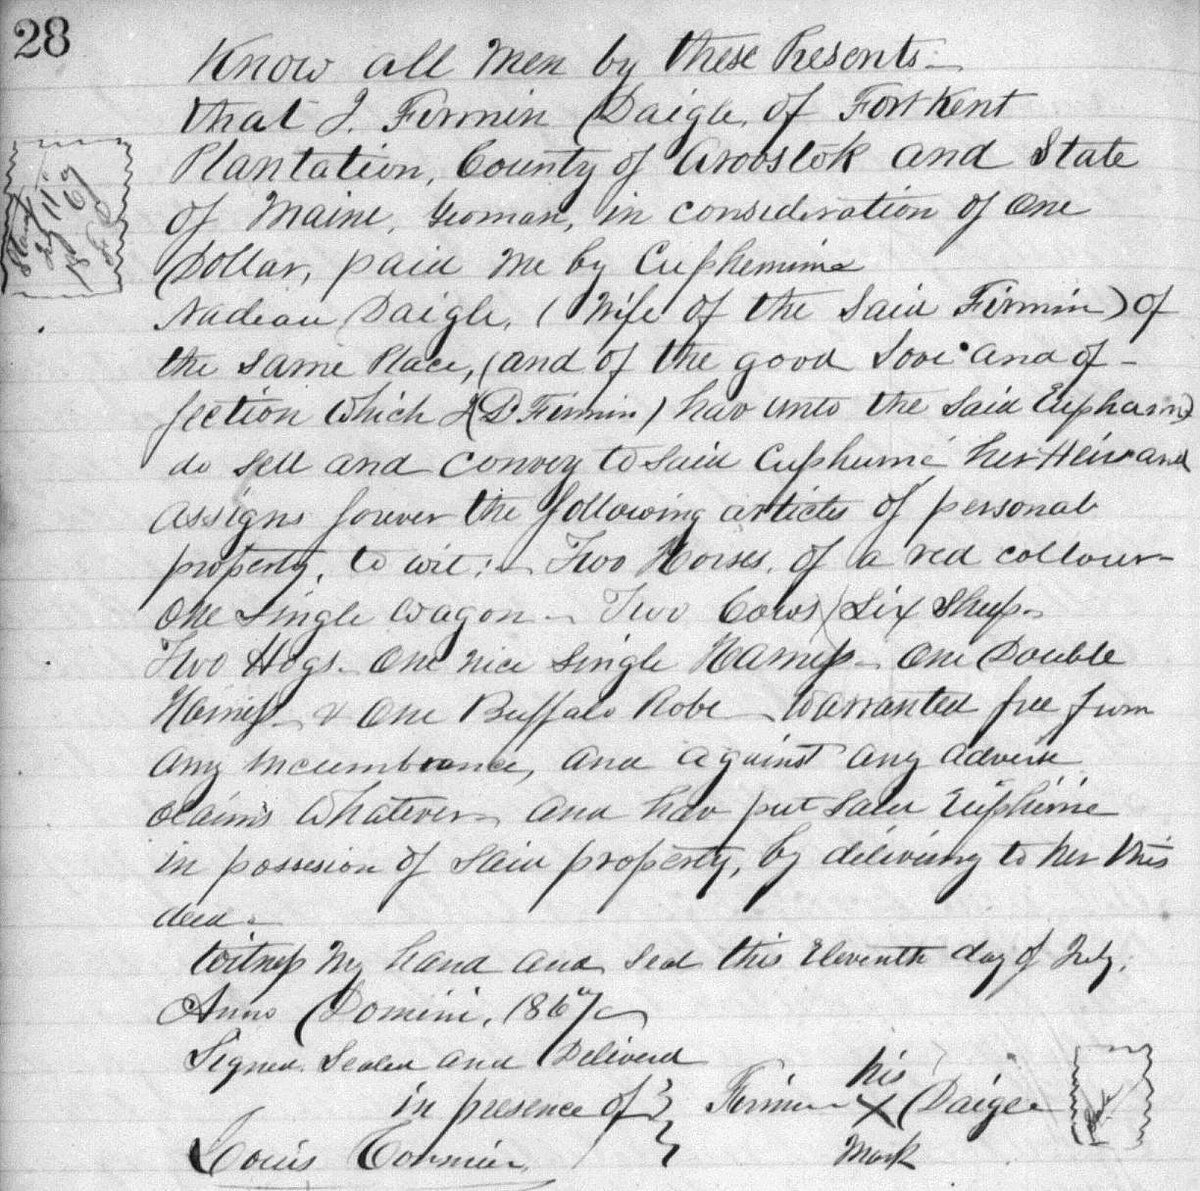 28
Know all Men by these Presents
that I. Firmin Daigle, of Fort Kent
Plantation, County of Aroostok and State
of Maine, Yeoman, in consideration of One
Dollar, paid me by Euphemime
Nadeau Daigle, (Wife of the Said Firmin) of
the same Place, (and of the good Love and of-
fection which I (D Firmin) hav unto the said Eupham)
do sell and convey to said Euphemie her Heir and
assigns forever the following articles of personal
property, to wit: Two Horses, of a red collour
One single wagon - Two Cows, Six Sheep
Two Hogs - One nice single Harness - One Double
Harness - & One Buffalo Robe - Warranted free from
any incumbrance, and against any adverse
claims Whatever - and hav put said Euphémie
in possesion of said property, by deliviering to her this
deed -
Witness My hand and Seal this Eleventh day of July,
Anno Domini, 1867
Signed Sealed and Deliverd
in presence of
Firmin his X mark Daigle
Seal
Louis Cormier
Stamp
July 11th
1867
F D